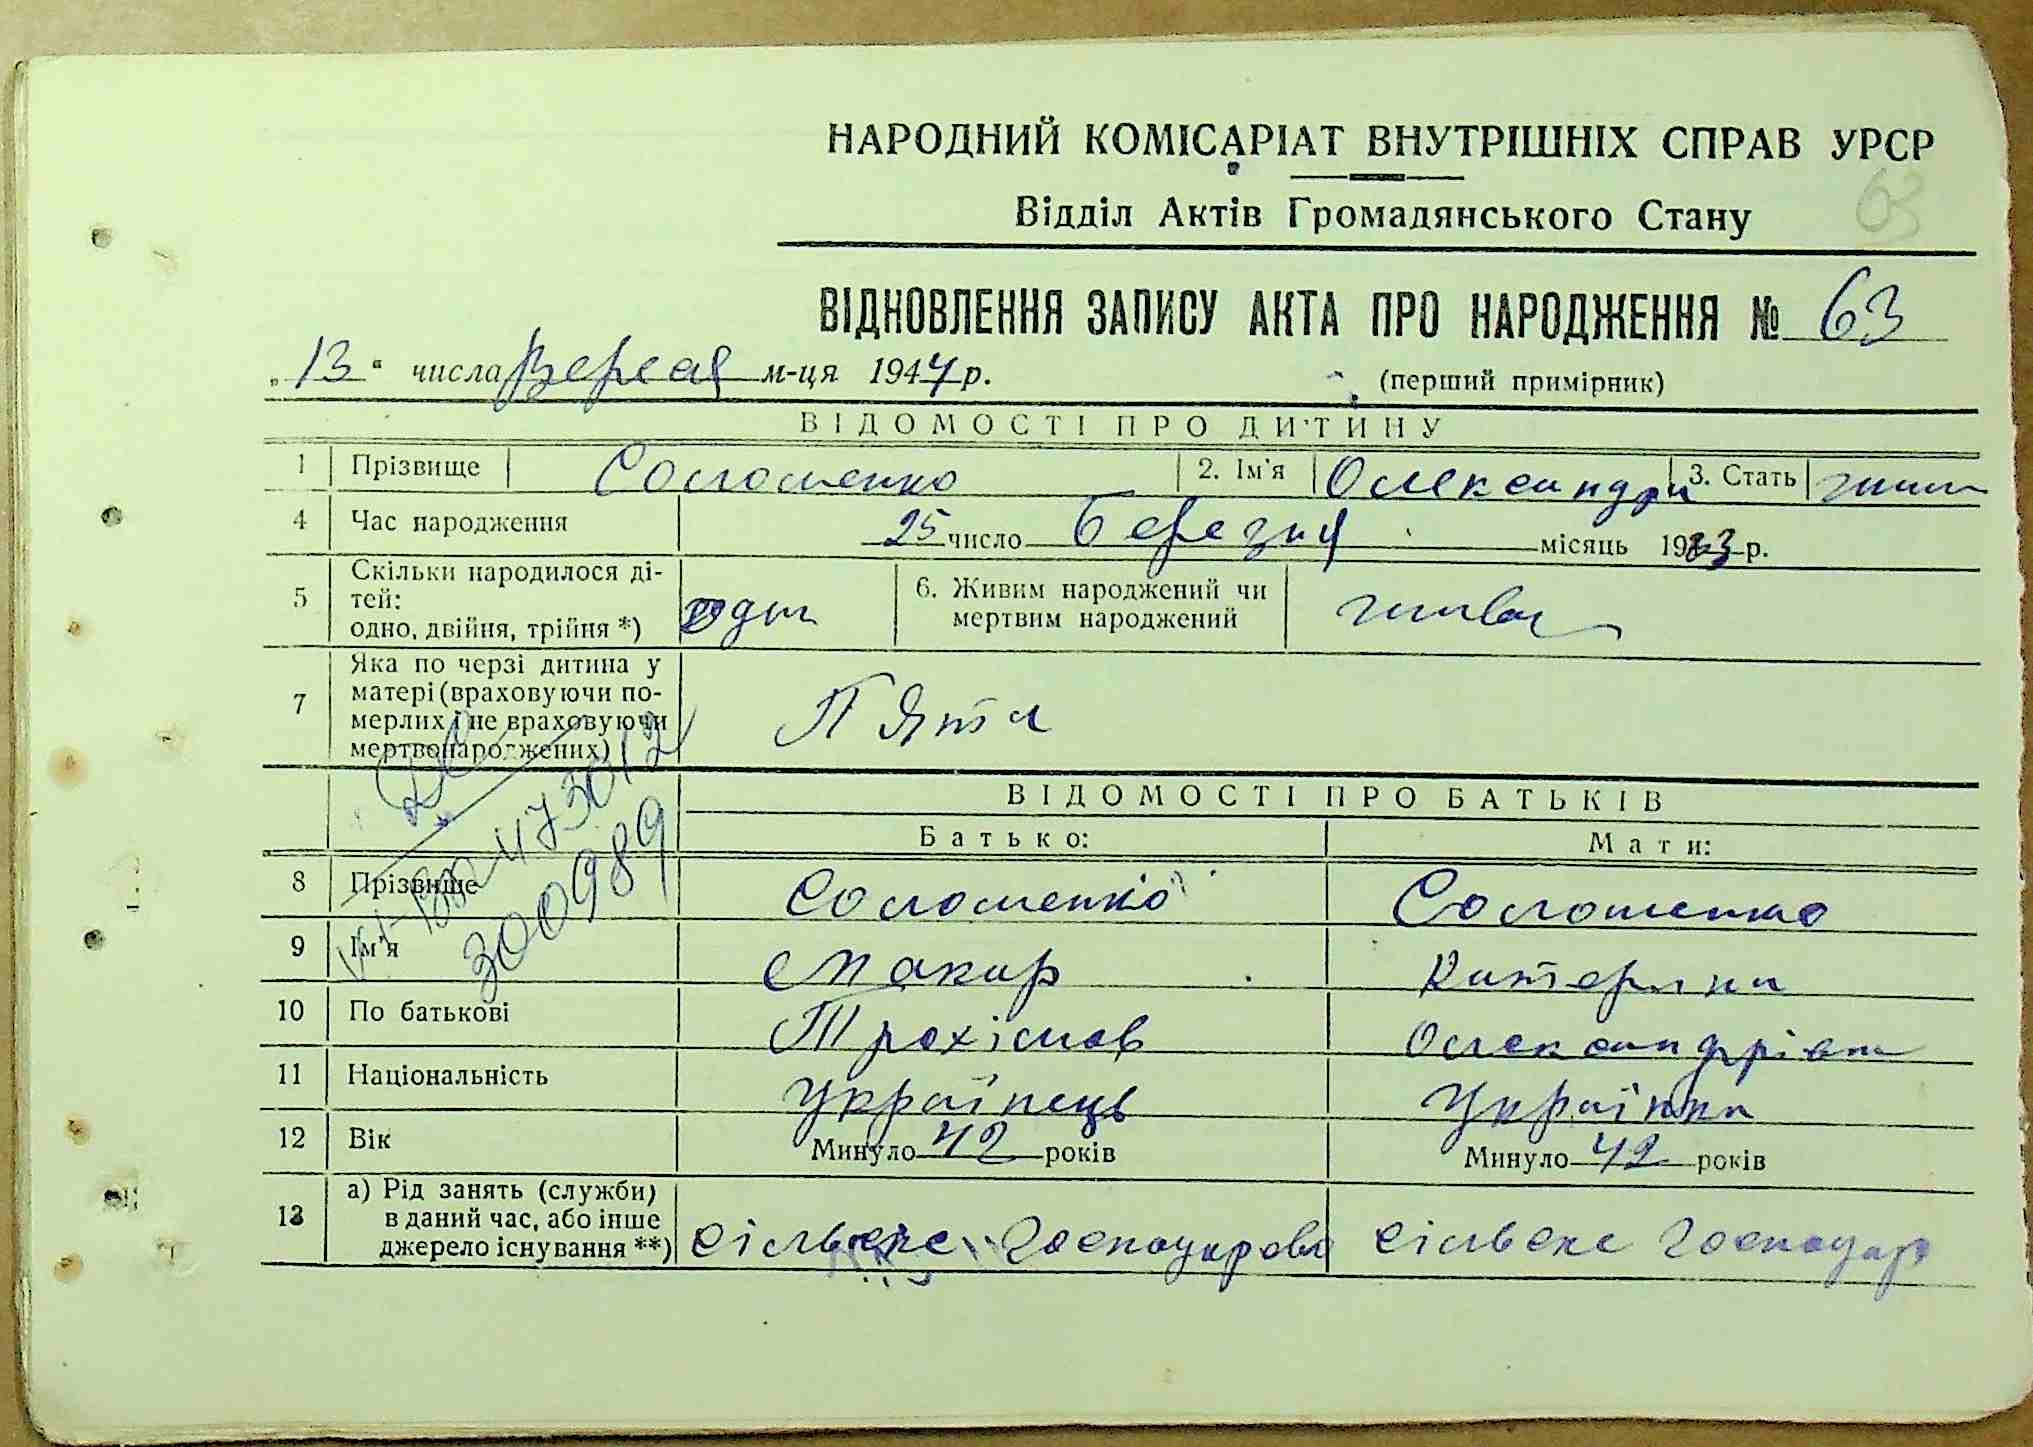 63
НАРОДНИЙ КОМІСАРІАТ ВНУТРІШНІХ СПРАВ УРСР
Відділ Актів Громадянського Стану
ВІДНОВЛЕННЯ ЗАПИСУ АКТА ПРО НАРОДЖЕННЯ № 63
„13“ числа м-ця 1944 р. (перший примірник)
ВІДОМОСТІ ПРО ДИТИНУ
1 Прізвище Соломенко 2. Ім'я Олександра 3. Стать
4 Час народження 25 число Березня місяць 1933 р.
5 Скільки народилося ді-
тей:
одно, двійня, трійня *) одна 6. Живим народжений чи
мертвим народжений жива
7 Яка по черзі дитина у
матері (враховуючи по-
мерлих і не враховуючи
мертвонароджених) П'ята
ВІДОМОСТІ ПРО БАТЬКІВ
Батько: Мати:
8 Прізвище Соломенко Соломенко
9 Ім'я Макар Катерина
10 По батькові Трохімов Олександрівна
11 Національність Українець Українка
12 Вік Минуло 42 років Минуло 42 років
13 а) Рід занять (служби)
в даний час, або інше
джерело існування **) сільске господарово сільске господар
300989